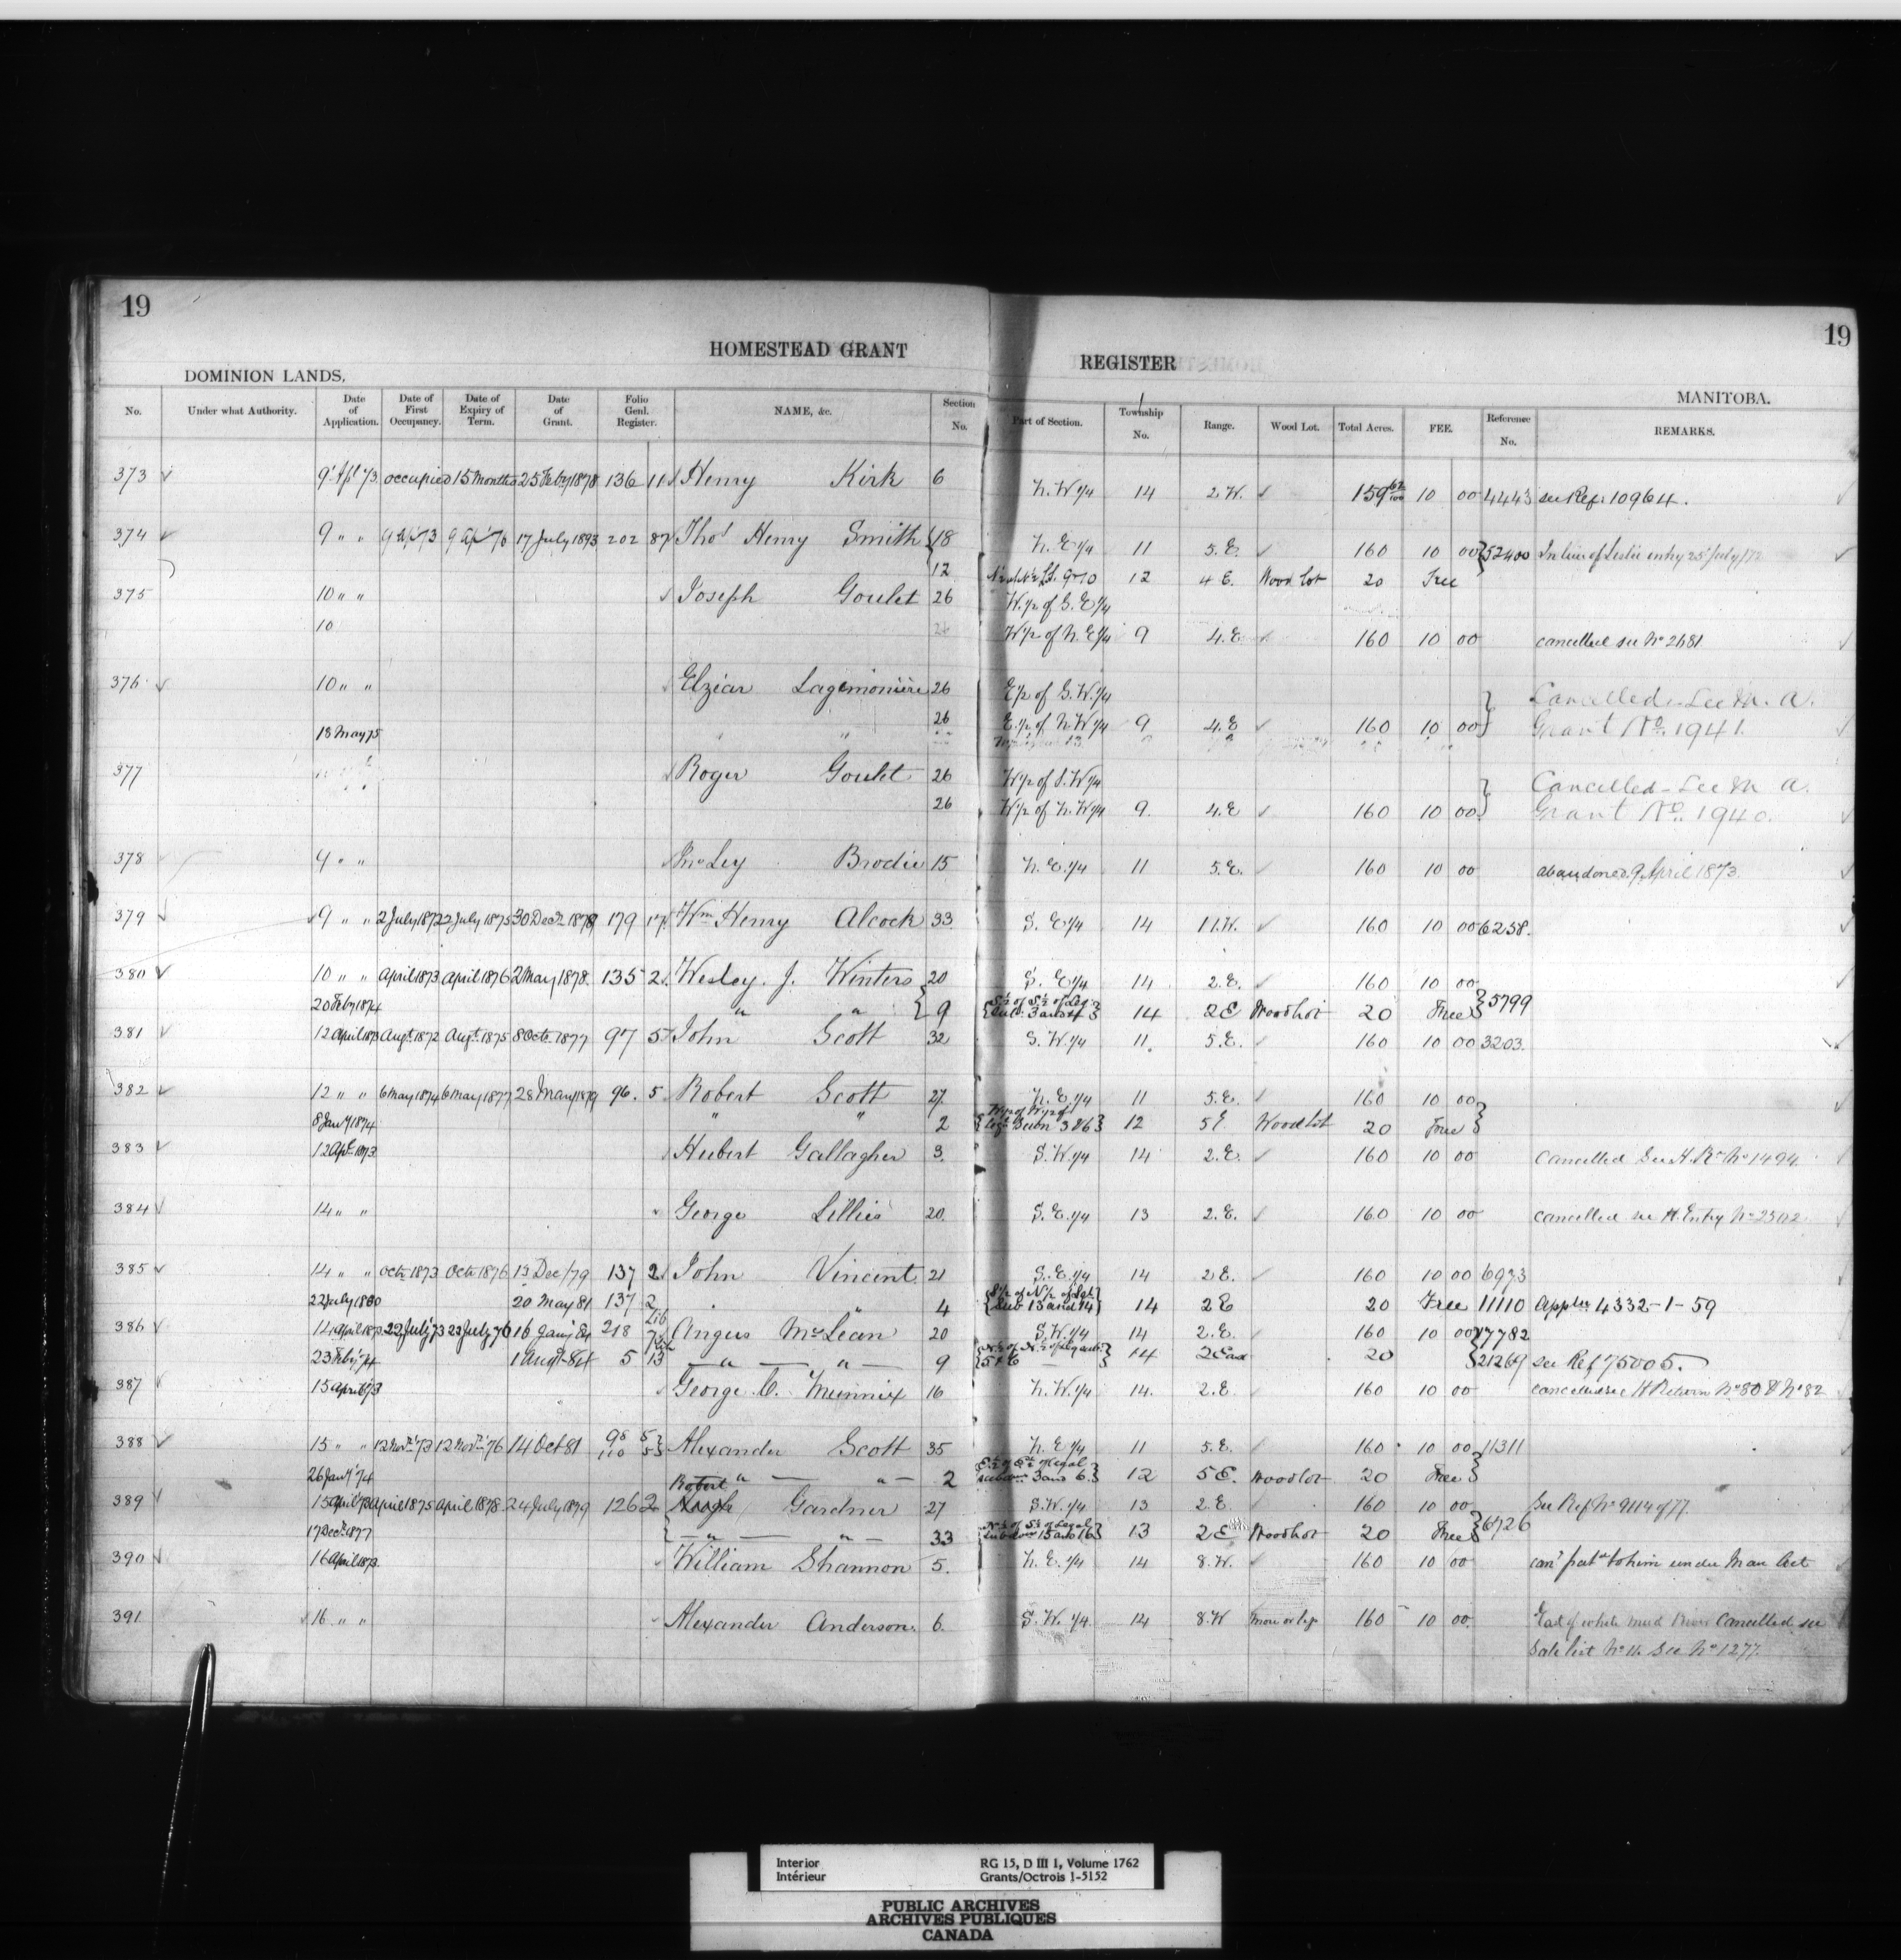 19
19
HOMESTEAD GRANT
REGISTER
DOMINION LANDS,
MANITOBA.
No. Under what Authority. Date of Application. Date of First Occupancy. Date of Expiry of Term. Date of Grant. Folio Genl. Register. NAME, &c. Section No. Part of Section. Township No. Range. Wood Lot. Total Acres. FEE. Reference No. REMARKS.
373 ✓ 9 Apl 73 occupied 15 Months 25 Feby 1878 136 11 Henry Kirk 6 N.W 1/4 14 2.W. ✓ 159 62/100 10 00 4443 see Ref: 10964.
374 ✓ 9 " " 9 Ap 73 9 Ap 76 17 July 1893 202 87 Thos Henry Smith 18 N.E 1/4 11 5.E. ✓ 160 10 00 52400 In lieu of Leslie entry 25 July /72
12 9 & 10 12 4 E. Wood Lot 20 Free
375 10 " " Joseph Goulet 26 W.1/2 of S.E 1/4
10 26 W 1/2 of N.E 1/4 9 4.E ✓ 160 10 00 cancelled see No 2681
376 ✓ 10 " " Elzéar Lagimonière 26 E 1/2 of S.W 1/4 Cancelled - See M. A.
18 May 75 26 E.1/2 of N.W 1/4 9 4.E ✓ 160 10 00 Grant No. 1941.
377 Roger Goulet 26 W 1/2 of S.W 1/4 Cancelled - See M A.
26 W 1/2 of N.W 1/4 9. 4.E ✓ 160 10 00 Grant No. 1940.
378 9 " " Brodie 15 N.E. 1/4 11 5.E. ✓ 160 10 00 abandoned 9 April 1873.
379 ✓ 9 " " 2 July 1872 2 July 1875 30 Decr 1878 179 17 Wm Henry Alcock 33 S. E 1/4 14 11.W. ✓ 160 10 00 6238.
380 ✓ 10 " " April 1873 April 1876 2 May 1878. 135 2 Wesley. J. Winters 20 S. E 1/4 14 2.E. ✓ 160 10 00
20 Feby 1874 " " 9 S 1/2 of S 1/2 of Leg. Sub. 3 and 4 14 2E Wood Lot 20 Free 5799
381 12 April 1873 Augt 1872 Augt 1875 8 Octr 1877 97 57 John Scott 32 S.W 1/4 11. 5.E. ✓ 160 10 00 3203.
382 ✓ 12 " " 6 May 1874 6 May 1877 28 May 1879 96. 5 Robert Scott 27. N.E. 1/4 11 5.E. ✓ 160 10 00
8 Jany 1874 " " 2 3 & 6 12 5E Wood Lot 20 Free
383 ✓ 12 Apl 1873 Hubert Gallagher 3. S.W 1/4 14 2.E. ✓ 160 10 00 Cancelled See H. Rn No 1494
384 ✓ 14 " " George Lillies 20. S.E. 1/4 13 2.E. ✓ 160 10 00 cancelled see H. Entry No 2502
385 ✓ 14 " " Octr 1873 Octr 1876 13 Dec /79 137 2 John Vincent 21 S.E. 1/4 14 2 E. ✓ 160 10 00 6973
22 July 1880 20 May 81 137 2 " " 4 S 1/2 of N 1/2 of Lgl Sub 13 and 14 14 2 E 20 Free 11110 Appln 4332-1-59
386 14 April 1873 22 July 73 22 July 76 16 Jany 218 Angus McLean 20 S.W 1/4 14 2.E. ✓ 160 10 00 17782
23 Feby 74 1 Augt 84 5 13 " " 9 14 2 East 20 21269 see Ref 75005.
387 15 April 73 George C. Munnix 16 N.W 1/4 14. 2.E. 160 10 00 cancelled see H Return No 80 & No 82
388 ✓ 15 " " 12 Novr 73 12 Novr 76 14 Oct 81 98 52 110 53 Alexander Scott 35 N.E 1/4 11 5.E. ✓ 160 10 00 11311
26 Jany 74 " " 2 3 and 6. 12 5E. Wood lot 20 Free
389 15 April 73 April 1875 April 1878 24 July 1879 126 2 Robert Hugh Gardner 27 S.W. 1/4 13 2.E. 160 10 00 See Ref No 9114 of 77.
17 Decr 1877 " " 33 N 1/2 of S 1/2 of Legal 15 and 16 13 2E Wood Lot 20 Free 6726
390 16 April 1873. William Shannon 5. N.E. 1/4 14 8.W. ✓ 160 10 00 to him under Man Act
391 16 " " Alexander Anderson. 6. S.W. 1/4 14 8.W more or less 160 10 00. East of white mud River Cancelled. see
Sale List No 11. See No 1277.
Interior
Intérieur
RG 15, D III 1, Volume 1762
Grants/Octrois 1-5152
PUBLIC ARCHIVES
ARCHIVES PUBLIQUES
CANADA